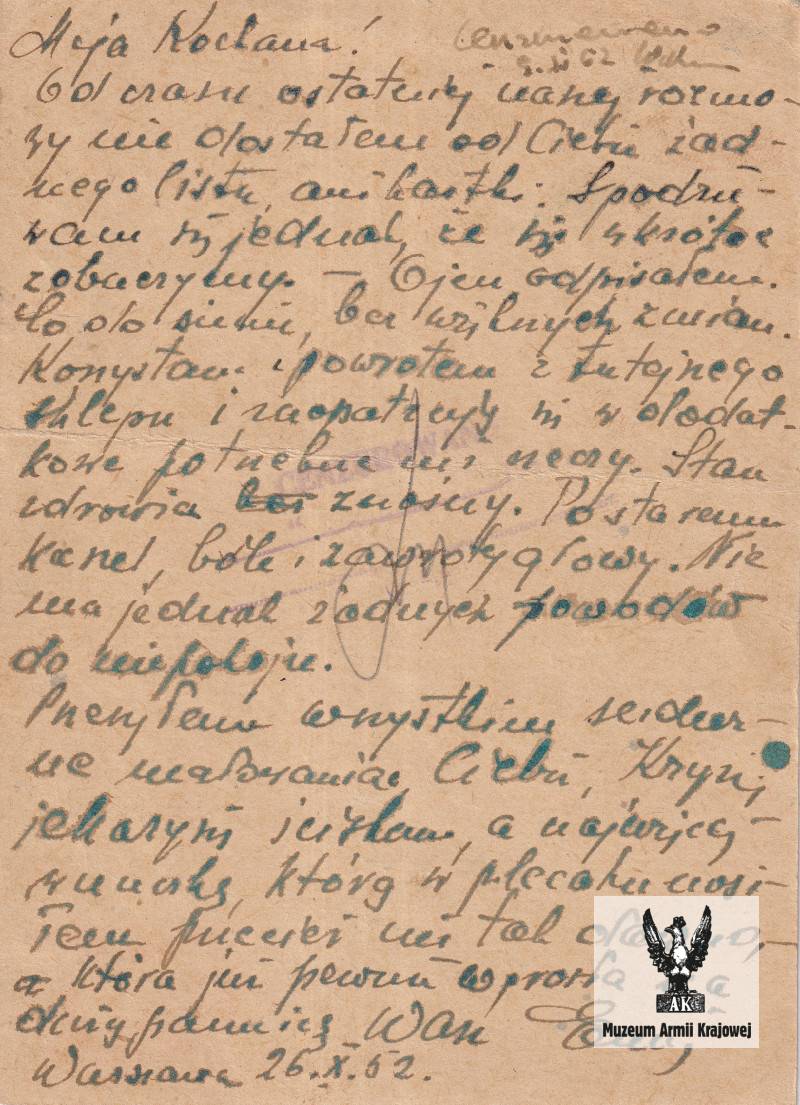 Moja Kochana!
Od czasu ostatniej naszej rozmo-
wy nie dostałem od Ciebie żad-
nego listu, ani kartki. Spodzie-
wam się jednak, że się wkrótce
zobaczymy. – Ojcu odpisałem.
Co do mnie, bez większych zmian.
Korzystam z powrotem z tutejszego
sklepu i zaopatruję się w dodat-
kowe potrzebne mi rzeczy. Stan
zdrowia znośny. Po staremu
kaszel, bóle i zawroty głowy. Nie
ma jednak żadnych powodów
do niepokoju.
Przesyłam wszystkim serdecz-
ne ucałowania, Ciebie, Krysię
jak ściskam, a najwięcej
wnuczkę, którą w plecaku nosi-
łem przecież nie tak
a która już pewnie wyrosła na
dużą pannicę Wasz
Warszawa 26.X.52.
Cenzurowano
CENZUROWANO
AK
Muzeum Armii Krajowej